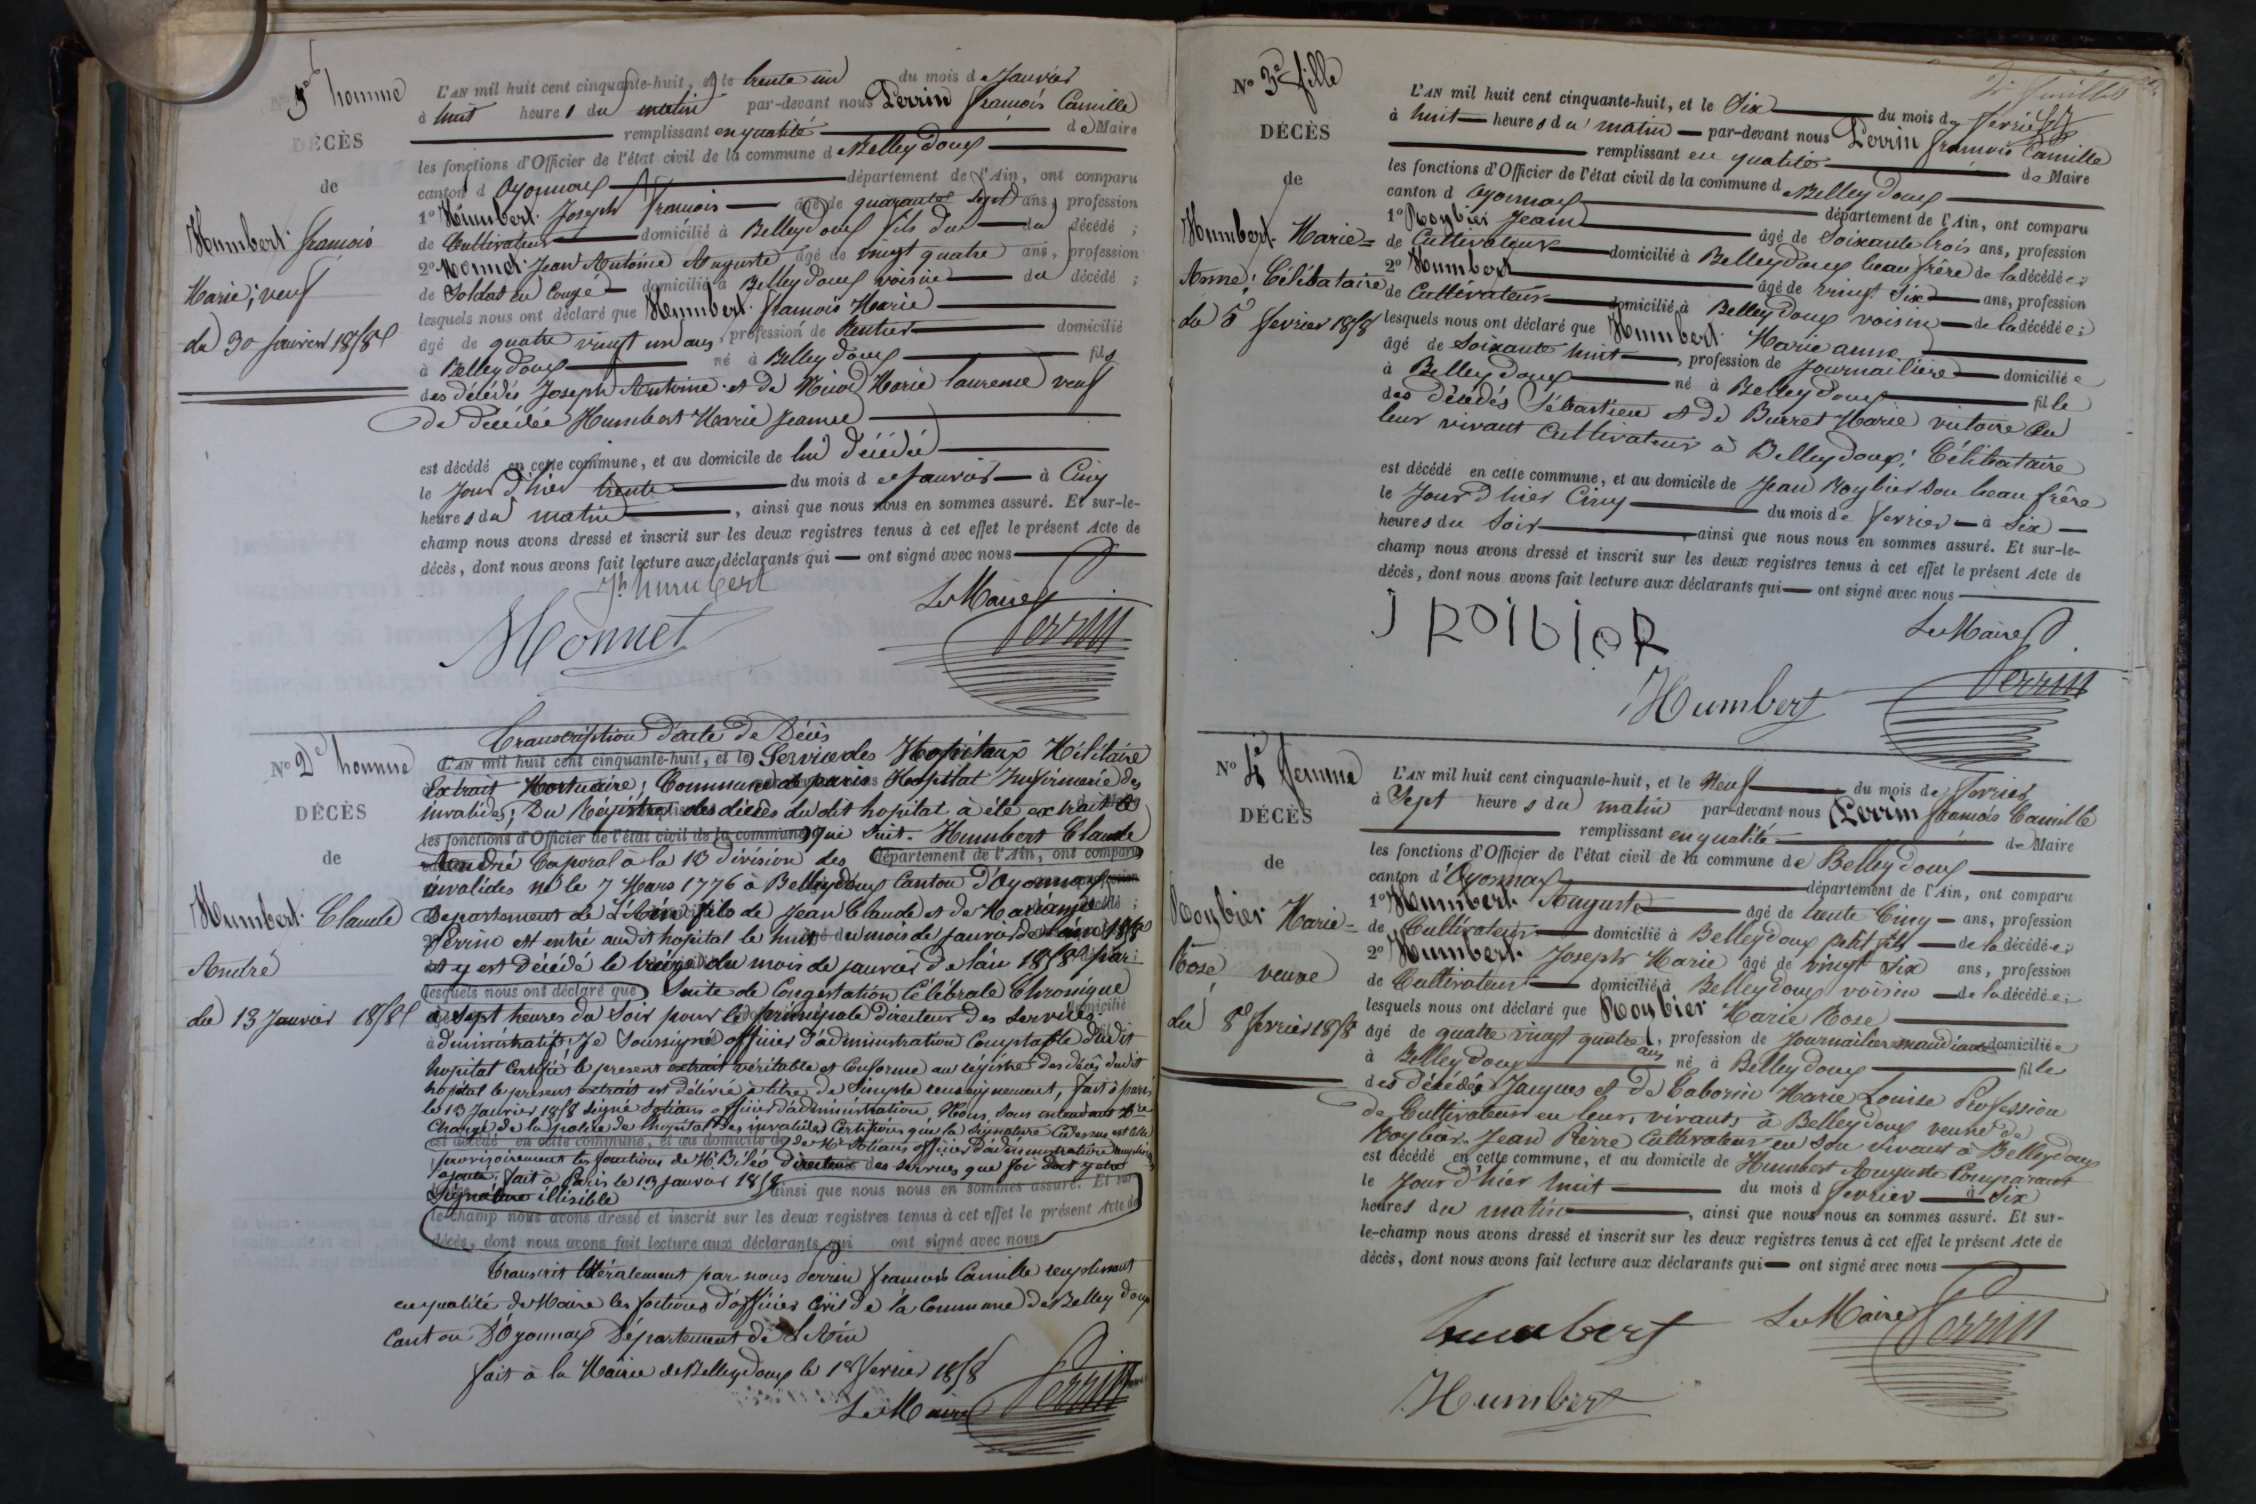 homme
DÉCÈS
de
Humbert François
Marie; veuf
du 30 Janvier 1858
L'AN mil huit cent cinquante-huit, et le trente un du mois de Janvier
à huit heures du matin par-devant nous Perrin françois Camille
remplissant en qualité de Maire
les fonctions d'Officier de l'état civil de la commune de Belleydoux
canton d'Oyonnax département de l'Ain, ont comparu
1º Humbert Joseph françois âgé de quarante sept ans, profession
de Cultivateur domicilié à Belleydoux fils du décédé ;
2º Monnet Jean Antoine Auguste âgé de vingt quatre ans, profession
de Soldat en Congé domicilié à Belleydoux voisin du décédé ;
lesquels nous ont déclaré que Humbert françois Marie
âgé de quatre vingt un ans, profession de Rentier domicilié
à Belleydoux né à Belleydoux fils
des décédés Joseph Antoine et de Marie laurence veuf
de décédée Humbert Marie Jeanne
est décédé en cette commune, et au domicile de lui décédé
le Jour d'hier trente du mois de Janvier à Cinq
heures du matin, ainsi que nous nous en sommes assuré. Et sur-le-
champ nous avons dressé et inscrit sur les deux registres tenus à cet effet le présent Acte de
décès, dont nous avons fait lecture aux déclarants qui ont signé avec nous
Jh humbert
Monnet
Le Maire
Perrin
No 2e homme
DÉCÈS
de
Humbert Claude
André
du 13 Janvier 1858
Transcription d'acte de Décès
L'AN mil huit cent cinquante-huit, et le Service des Hopitaux Militaire
Extrait Mortuaire; Commune de paris Hospital Infirmerie des
invalides; Du Régistres des décès du dit hopital à été extrait ce
les fonctions d'Officier de l'état civil de la commune qui Suit. Humbert Claude
André Caporal à la 13 division des département de l'Ain, ont comparu
invalides né le 7 Mars 1776 à Belleydoux Canton d'Oyonnax
Département de L'Ain fils de Jean Claude et de Marianne
Perrin est entré audit hopital le huit du mois de Janvier de l'an 1858
et y est Décédé le treize du mois de janvier de l'an 1858 par
lesquels nous ont déclaré que Suite de Congestation Célébrale Chronique
à Sept heures du Soir pour le principale directeur des Services
administratifs Je Soussigné officier d'administration Comptable dudit
hopital Certifié le present extrait véritable et Conforme au régistre des décès dudit
hopital le present extrait est délivré à titre de Simple renseignement, fait à paris
le 13 Janvier 1858 Signé officier d'administration. Nous, Sous intendant Mre
Chargé de la police de l'hopital des invalides Certifions que la Signature Cidessus est
est décédé en cette commune, et au domicile de de Mr officier d'administration
provisoirement les fonctions de Mr directeur des Services que foi doit y etre
ajouté, fait à Paris le 13 janvier 1858 ainsi que nous nous en sommes assuré. Et sur
Signature illisible
le-champ nous avons dressé et inscrit sur les deux registres tenus à cet effet le présent Acte de
décès, dont nous avons fait lecture aux déclarants qui ont signé avec nous
Transcrit littéralement par nous Perrin françois Camille remplissant
en qualité de Maire les fonctions d'officier Civil de la Commune de Belleydoux
Canton D'Oyonnax Département de L'Ain
fait à la Mairie de Belleydoux le 1er fevrier 1858
Le Maire
Perrin
No 3e fille
DÉCÈS
de
Humbert Marie=
Anne; Célibataire
du 5 fevrier 1858
L'AN mil huit cent cinquante-huit, et le Six du mois de fevrier
à huit heures du matin par-devant nous Perrin françois Camille
remplissant en qualité de Maire
les fonctions d'Officier de l'état civil de la commune de Belleydoux
canton d'Oyonnax département de l'Ain, ont comparu
1º Roybier Jean âgé de Soixante trois ans, profession
de Cultivateur domicilié à Belleydoux beau frère de la décédée;
2º Humbert âgé de vingt Six ans, profession
de Cultivateur domicilié à Belleydoux voisin de la décédée;
lesquels nous ont déclaré que Humbert Marie anne
âgé de Soixante huit, profession de Journalière domiciliée
à Belleydoux né à Belleydoux fille
des Décédés Sébastien et de Burret Marie victoire En
leur vivant Cultivateur à Belleydoux; Célibataire
est décédé en cette commune, et au domicile de Jean Roybier Son beau frère
le Jour d'hier Cinq du mois de fevrier à Six
heures du Soir, ainsi que nous nous en sommes assuré. Et sur-le-
champ nous avons dressé et inscrit sur les deux registres tenus à cet effet le présent Acte de
décès, dont nous avons fait lecture aux déclarants qui ont signé avec nous
J ROIBIER
Le Maire
Humbert
Perrin
No 4e femme
DÉCÈS
de
Roybier Marie=
Rose veuve
du 8 fevrier 1858
L'AN mil huit cent cinquante-huit, et le Neuf du mois de fevrier
à Sept heures du matin par-devant nous Perrin françois Camille
remplissant en qualité de Maire
les fonctions d'Officier de l'état civil de la commune de Belleydoux
canton d'Oyonnax département de l'Ain, ont comparu
1º Humbert Auguste âgé de trente Cinq ans, profession
de Cultivateur domicilié à Belleydoux petit fils de la décédée;
2º Humbert Joseph Marie âgé de vingt Six ans, profession
de Cultivateur domicilié à Belleydoux voisin de la décédée;
lesquels nous ont déclaré que Roybier Marie Rose
âgé de quatre vingt quatre ans, profession de Journalier mandiant domiciliée
à Belleydoux né à Belleydoux fille
des décédés Jacques et de Marie Louise Profession
de Cultivateur en leur vivants à Belleydoux veuve de
Roybier Jean Pierre Cultivateur en Son vivant à Belleydoux
est décédé en cette commune, et au domicile de Humbert Auguste Comparant
le Jour d'hier huit du mois d fevrier à Six
heures du matin, ainsi que nous nous en sommes assuré. Et sur-
le-champ nous avons dressé et inscrit sur les deux registres tenus à cet effet le présent Acte de
décès, dont nous avons fait lecture aux déclarants qui ont signé avec nous
humbert
Le Maire
Perrin
Humbert